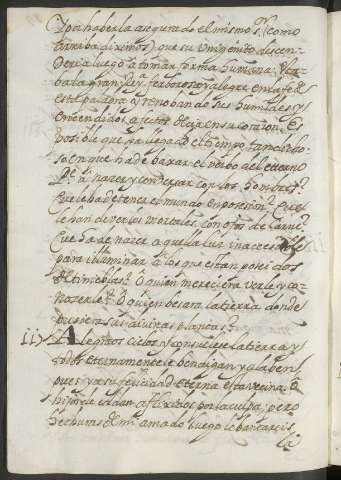 Y por haberla asegurado el mismo Sr. (como
arriba diximos) que su Unigenito descen-
deria luego a tomar forma humana. Esta-
ba la gran Reyna feruorosa y alegre en la fe de
esta palabra y renobando sus humildes y
encendidos afectos decia en su corazon. Es
posible que ha llegado el tiempo tan dicho-
so en que ha de baxar el verbo del eterno
Pe. a nazer y conversar con los hombres?
Que le ha de tener el mundo en posesion? Que
le han de ver los mortales con ojos de carne?
Que ha de nazer aquella luz inacesible
para illuminar a los que estan poseidos
de tinieblas? O quien mereciera verle y co-
nozerle? O quien besara la tierra donde
pusiera sus divinas plantas?
11) Alegraos cielos y consuelese la tierra y
todos eternamente le bendigan y alaben
pues ya su felicidad eterna esta vezina. O
hijos de Adan aflixidos por la culpa, pero
hechuras de mi amado luego lebantareis
la